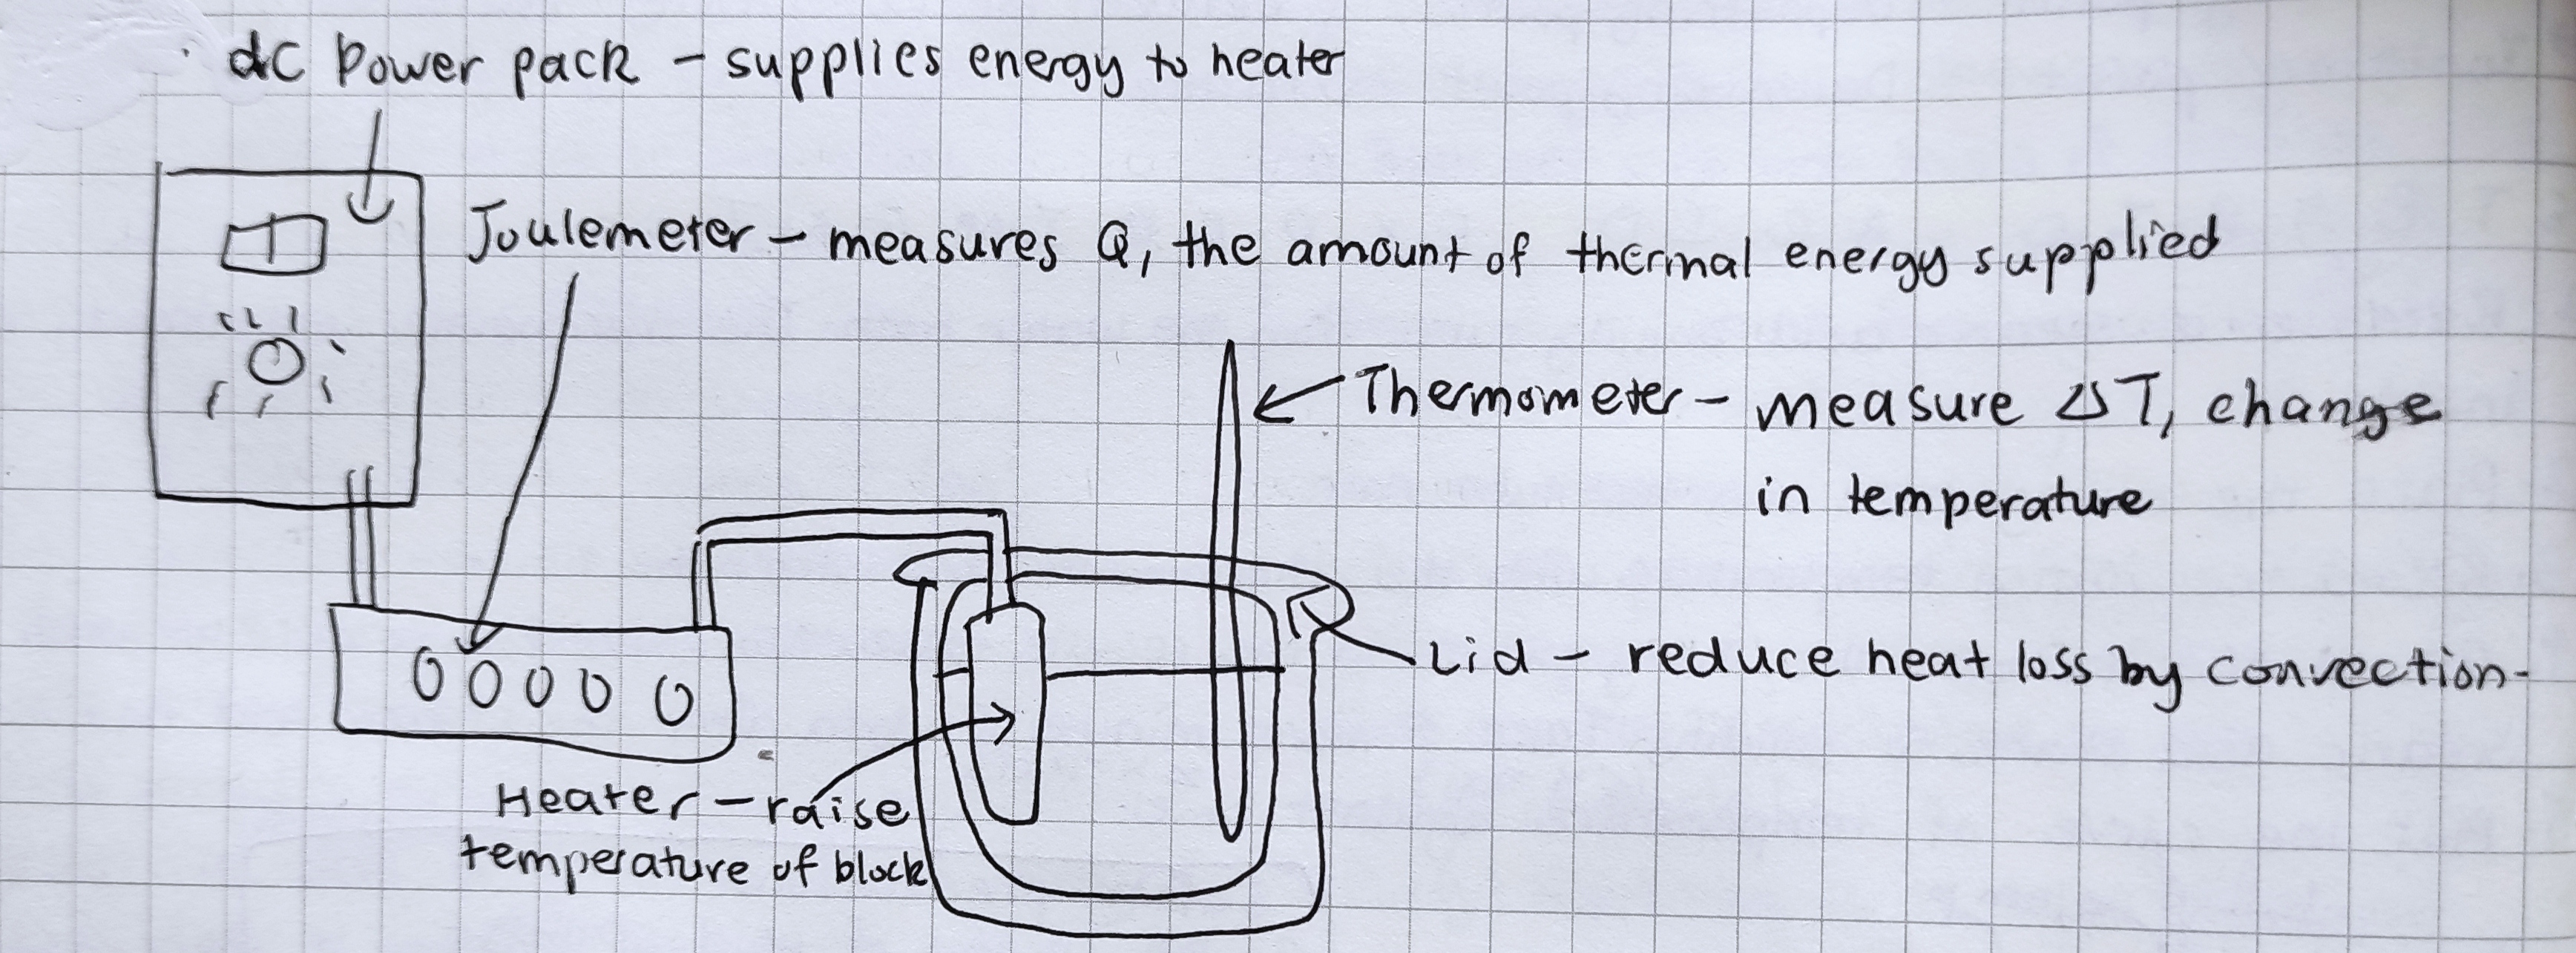 dc Power pack – supplies energy to heater
Joulemeter – measures Q, the amount of thermal energy supplied
Thermometer – measure ΔT, change
in temperature
Lid – reduce heat loss by convection.
Heater – raise
temperature of block